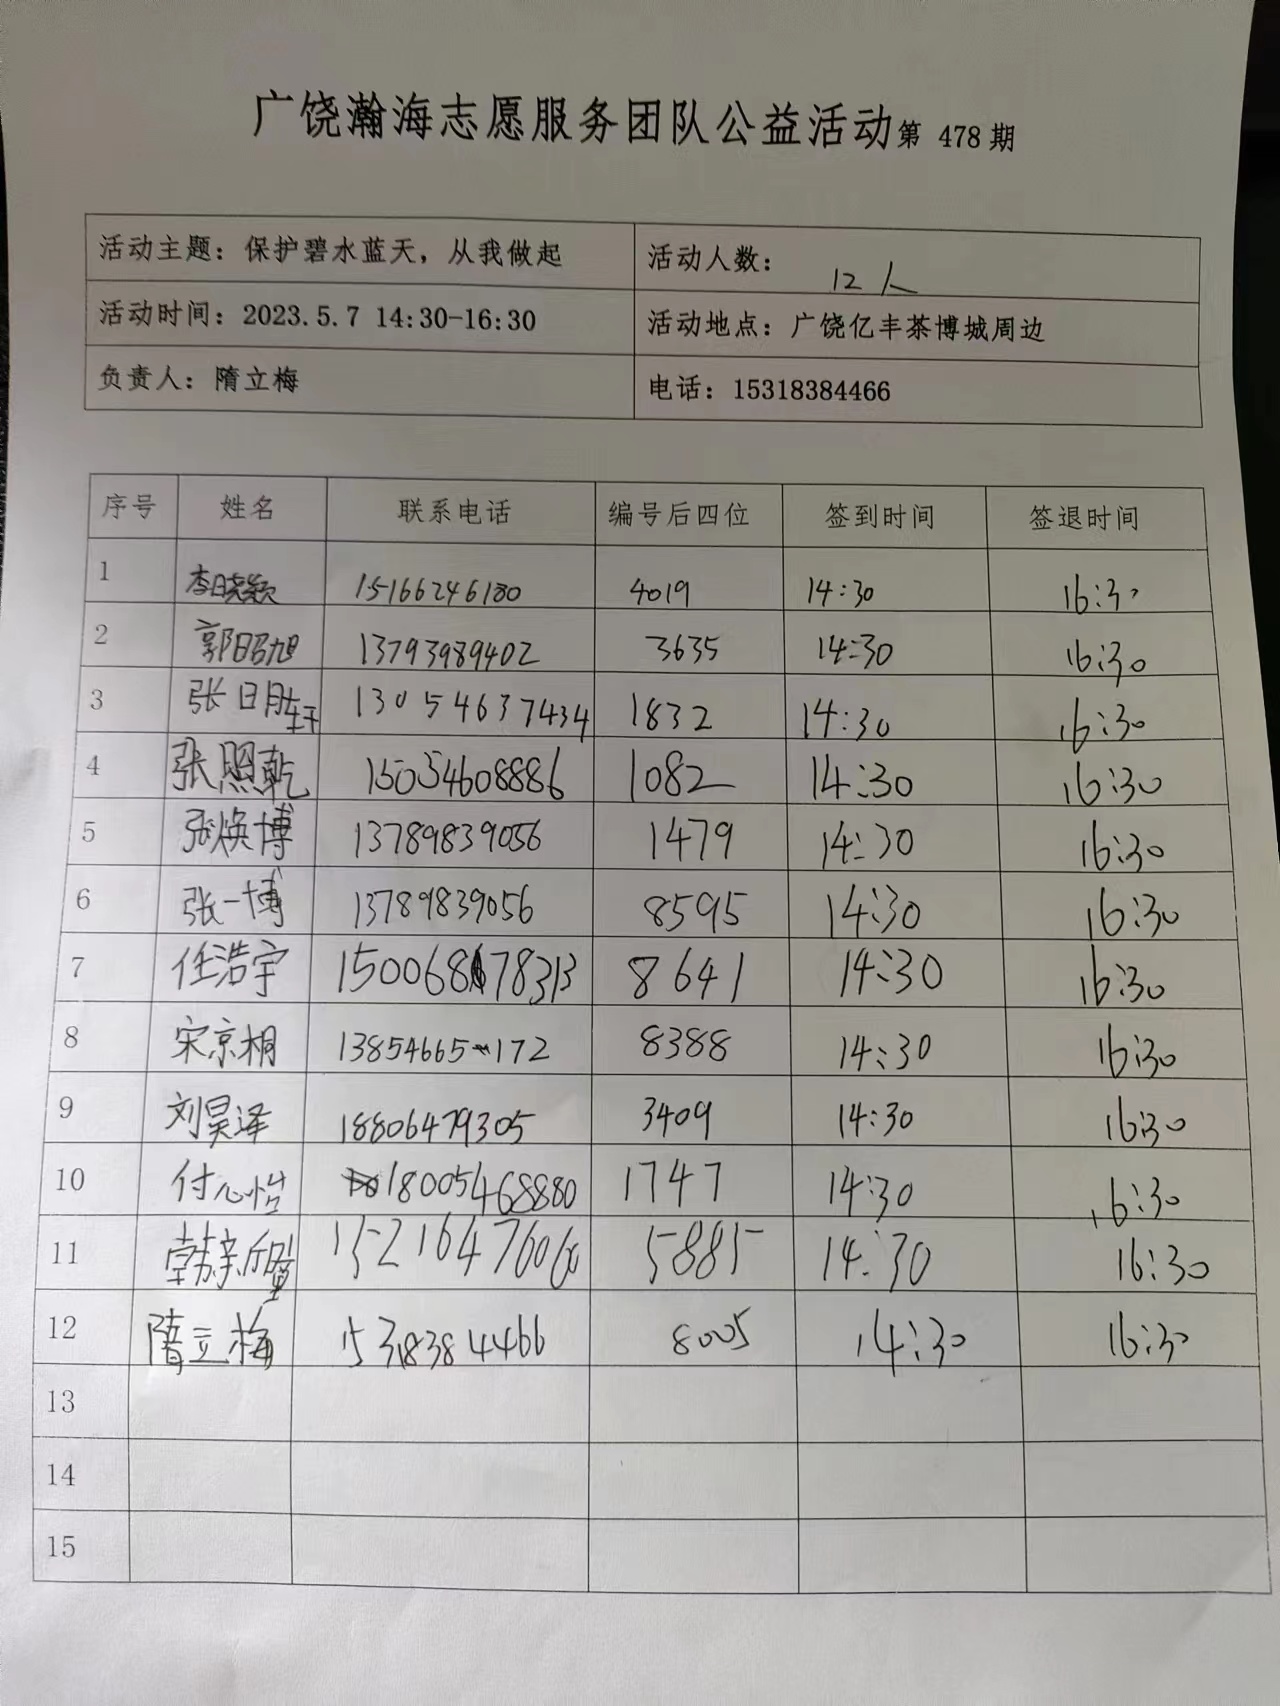 广饶瀚海志愿服务团队公益活动第 478 期
活动主题：保护碧水蓝天，从我做起 活动人数： 12人
活动时间：2023.5.7 14:30-16:30 活动地点：广饶亿丰茶博城周边
负责人：隋立梅 电话：15318384466
序号 姓名 联系电话 编号后四位 签到时间 签退时间
1 李晓颖 15166246180 4019 14:30 16:30
2 郭昭旭 13793989402 3635 14:30 16:30
3 张 13054637434 1832 14:30 16:30
4 张照乾 15054608886 1082 14:30 16:30
5 张焕博 13789839056 1479 14:30 16:30
6 张一博 13789839056 8595 14:30 16:30
7 任浩宇 8641 14:30 16:30
8 宋京桐 13854665172 8388 14:30 16:30
9 刘昊泽 18806479305 3409 14:30 16:30
10 付心怡 18005468880 1747 14:30 16:30
11 韩 5885 14:30 16:30
12 隋立梅 15318384466 8005 14:30 16:30
13
14
15